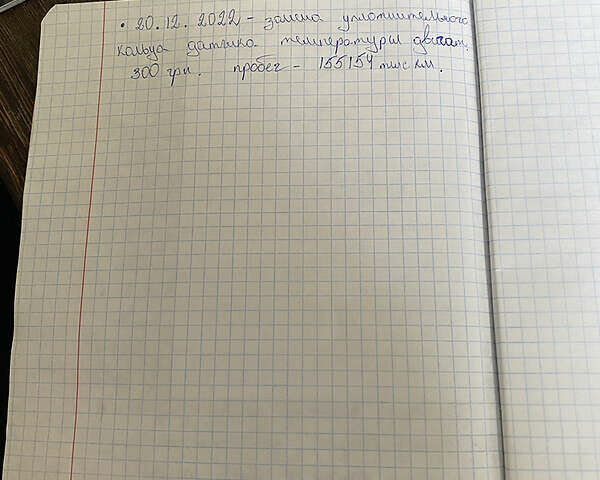 • 20.12.2022 - замена уплотнительного
кольца датчика температуры двигат.
300 грн. пробег - 155154 тыс км.